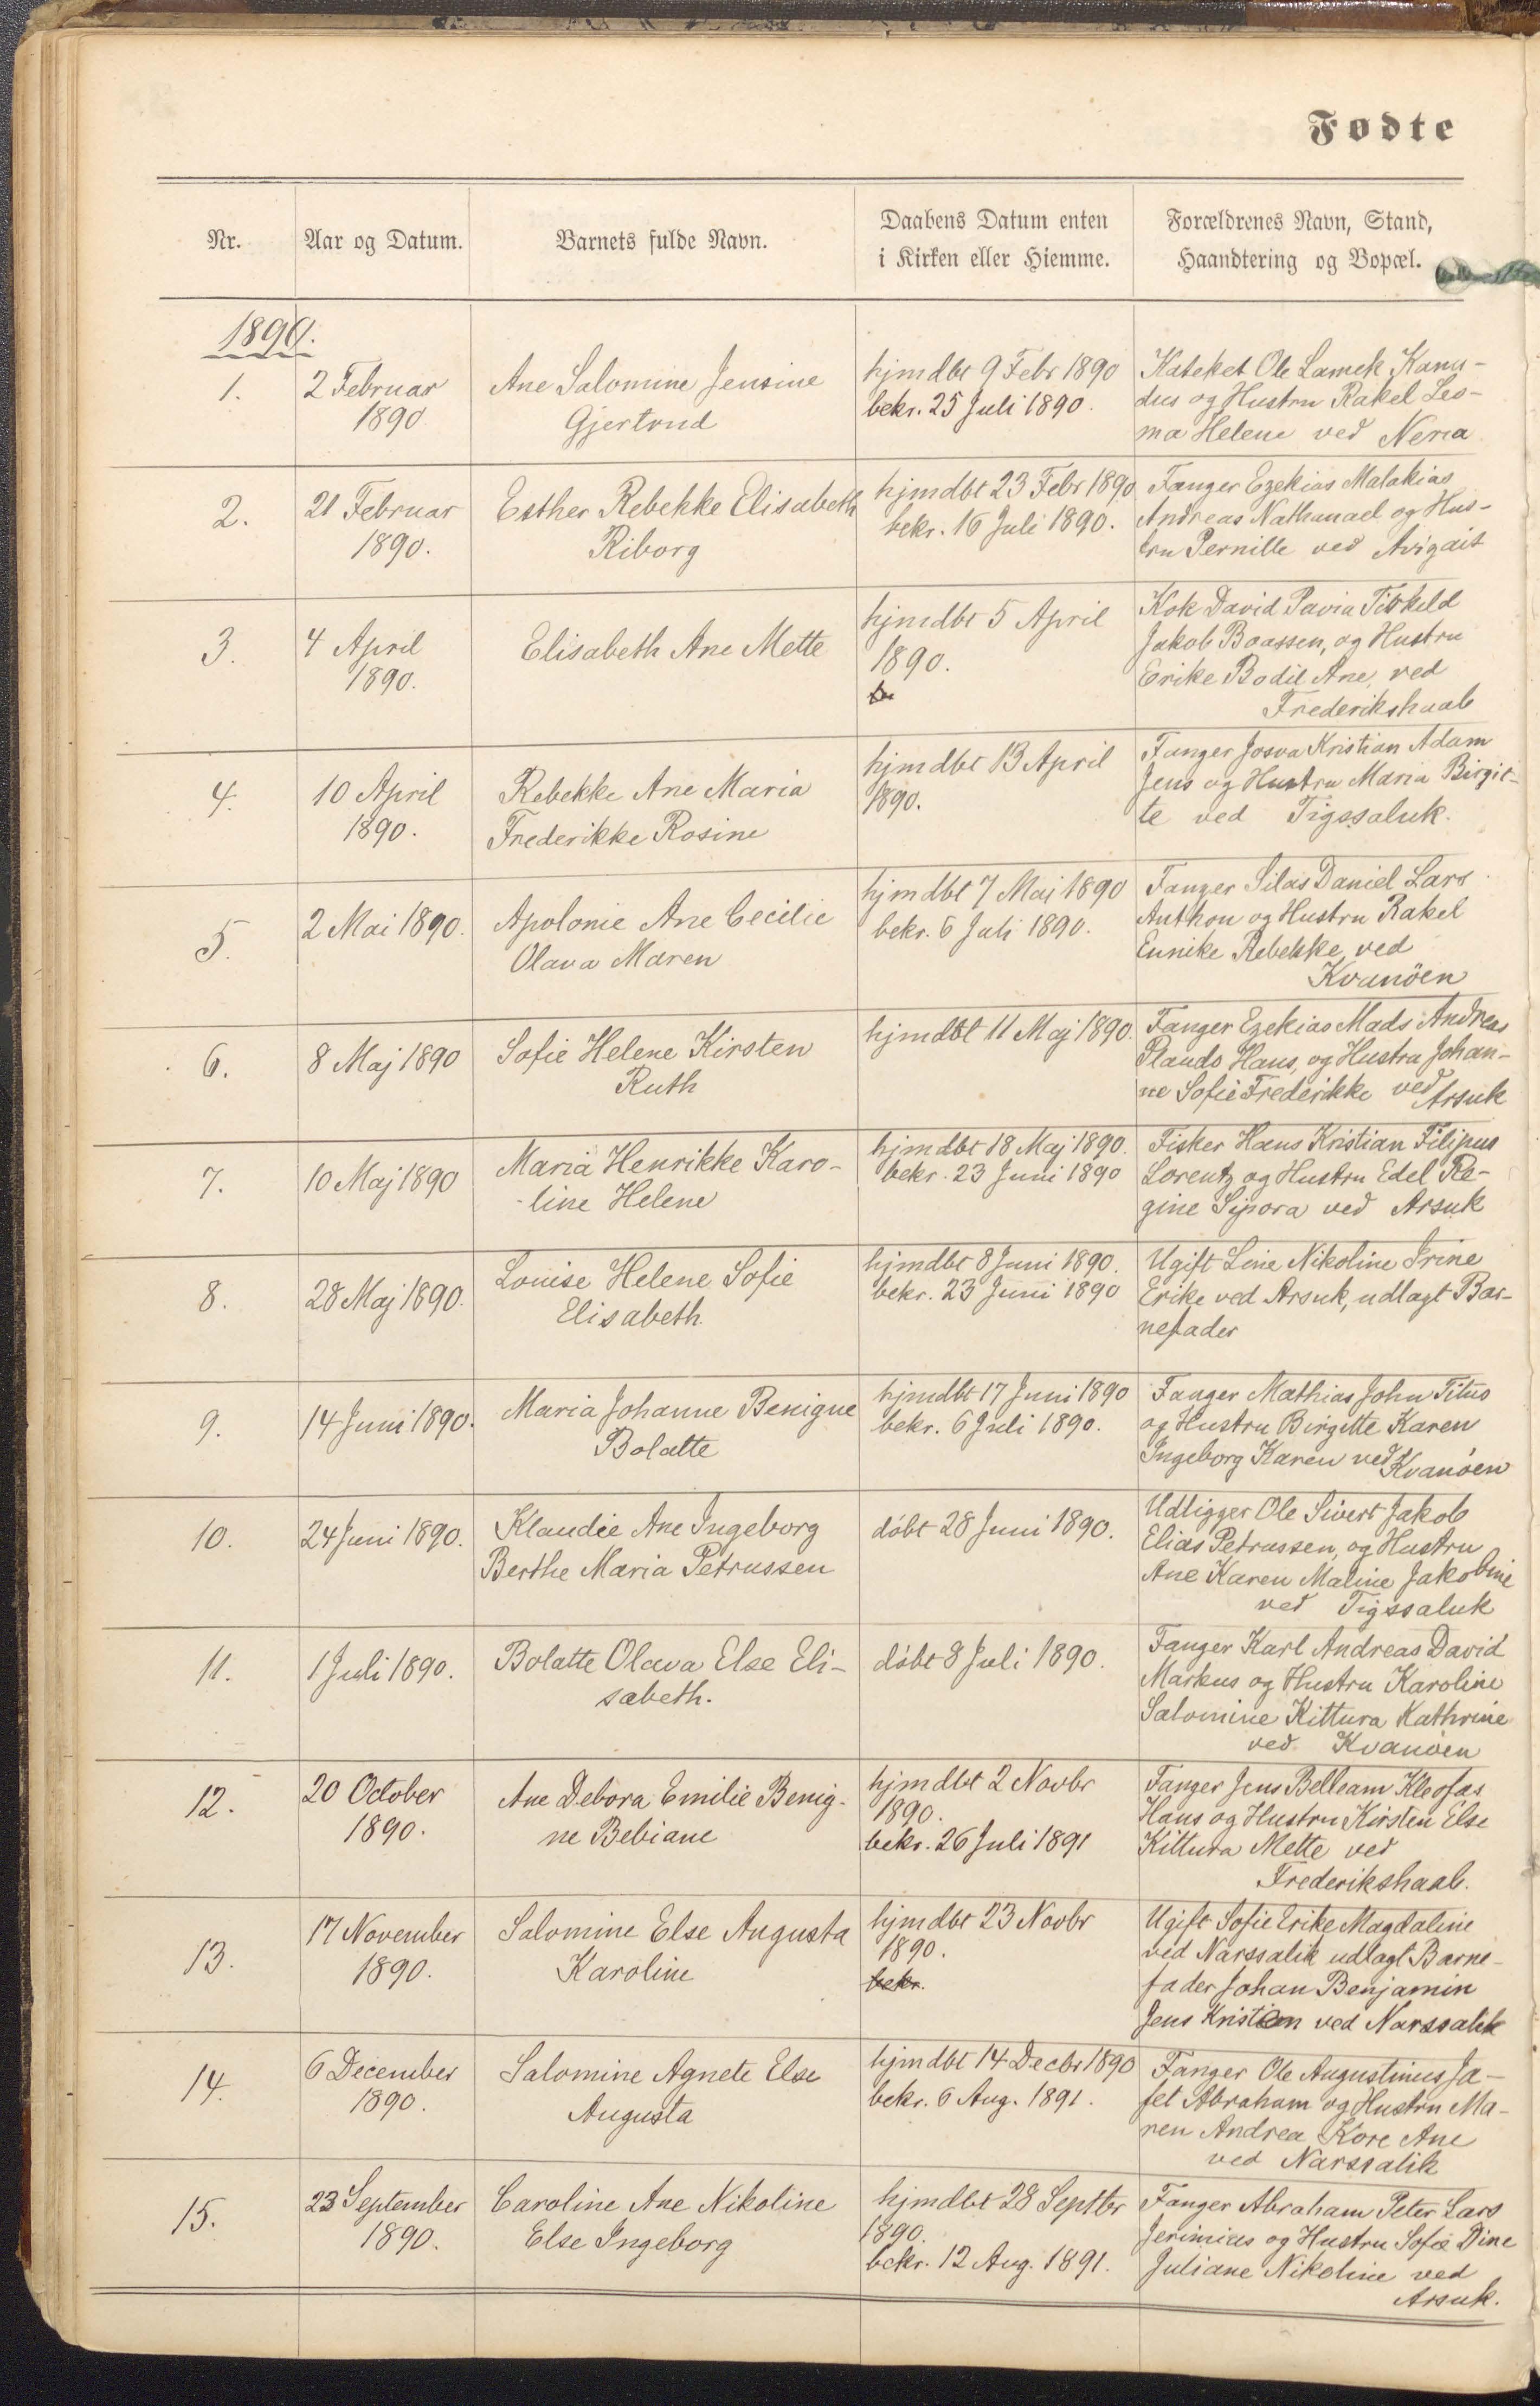 Fødte
Nr.
Aar og Datum.
Barnets fulde Navn.
Daabens Datum enten
i Kirken eller Hiemme.
Forældrenes Navn, Stand,
Haandtering og Bopæl.
1890.
1.
2 Februar
1890
Ane Salomine Jensine
Gjertrud
hjmdbt 9 Febr 1890
bekr. 25 Juli 1890.
Kateket Ole Lamek Kanu-
dus og Hustru Rakel Leo-
ma Helene ved Neria
2.
21 Februar
1890.
Esther Rebekke Elisabeth
Riborg
hjmdbt 23 Febr 1890
bekr. 16 Juli 1890.
Fanger Ezekias Malakias
Andreas Nathanael og Hus-
tru Pernille ved Avigait
3.
4 April
1890.
Elisabeth Ane Mette
hjmdbt 5 April
1890.
Kok David Pavia Tirkeld
Jakob Boassen, og Hustru
Erike Bodil Ane, ved
Frederikshaab
4.
10 April
1890.
Rebekke Ane Maria
Frederikke Rosine
hjmdbt 13 April
1890.
Fanger Josva Kristian Adam
Jens og Hustru Maria Birgit-
te ved Tigssaluk.
5.
2 Mai 1890.
Apolonie Ane Cecilie
Olava Maren
hjmdbt 7 Mai 1890
bekr. 6 Juli 1890.
Fanger Silas Daniel Lars
Anthon og Hustru Rakel
Eunike Rebekke, ved
Kvanöen
6.
8 Maj 1890
Sofie Helene Kirsten
Ruth
hjmdbt 11 Maj 1890.
Fanger Ezekias Mads Andreas
Plauds Hans, og Hustru Johan-
ne Sofie Frederikke ved
Arsuk
7.
10 Maj 1890
Maria Henrikke Karo-
-line Helene
hjmdbt 18 Maj 1890.
bekr. 23 Juni 1890
Fisker Hans Kristian Filipus
Lorentz og Hustru Edel Re-
gine Sipora ved Arsuk
8.
28 Maj 1890.
Louise Helene Sofie
Elisabeth.
hjmdbt 8 Juni 1890.
bekr. 23 Juni 1890
Ugift Line Nikoline Irine
Erike ved Arsuk, udlagt Bar-
nefader
9.
14 Juni 1890.
Maria Johanne Benigne
Bolatte
hjmdbt 17 Juni 1890
bekr. 6 Juli 1890.
Fanger Mathias John Titus
og Hustru Birgitte Karen
Ingeborg Karen ved
Kvanöen
10.
24 Juni 1890.
Klaudie Ane Ingeborg
Berthe Maria Petrussen
döbt 28 Juni 1890.
Udligger Ole Sivert Jakob
Elias Petrussen, og Hustru
Ane Karen Maline Jakobine
ved Tigssaluk
11.
1 Juli 1890.
Bolatte Olava Else Eli-
sabeth.
döbt 8 Juli 1890.
Fanger Karl Andreas David
Markus og Hustru Karoline
Salomine Kittura Kathrine
ved Kvanöen
12.
20 October
1890.
Ane Debora Emilie Benig-
ne Bebiane
hjmdbt 2 Novbr
1890.
bekr. 26 Juli 1891
Fanger Jens Belleam Kleofas
Hans og Hustru Kirsten Else
Kittura Mette ved
Frederikshaab.
13.
17 November
1890.
Salomine Else Augusta
Karoline
hjmdbt 23 Novbr
1890.
bekr.
Ugift Sofie Erike Magdaline
ved Narssalik udlagt Barne-
fader Johan Benjamin
Jens Kristian ved Narssalik
14.
6 December
1890.
Salomine Agnete Else
Augusta
hjmdbt 14 Decbr 1890
bekr. 6 Aug. 1891.
Fanger Ole Augustinus Ja-
fet Abraham og Hustru Ma-
ren Andrea Kore Ane
ved Narssalik
15.
23 September
1890.
Caroline Ane Nikoline
Else Ingeborg
hjmdbt 28 Septbr
1890.
bekr. 12 Aug. 1891.
Fanger Abraham Peter Lars
Jerimias og Hustru Sofie Dine
Juliane Nikoline ved
Arsuk.